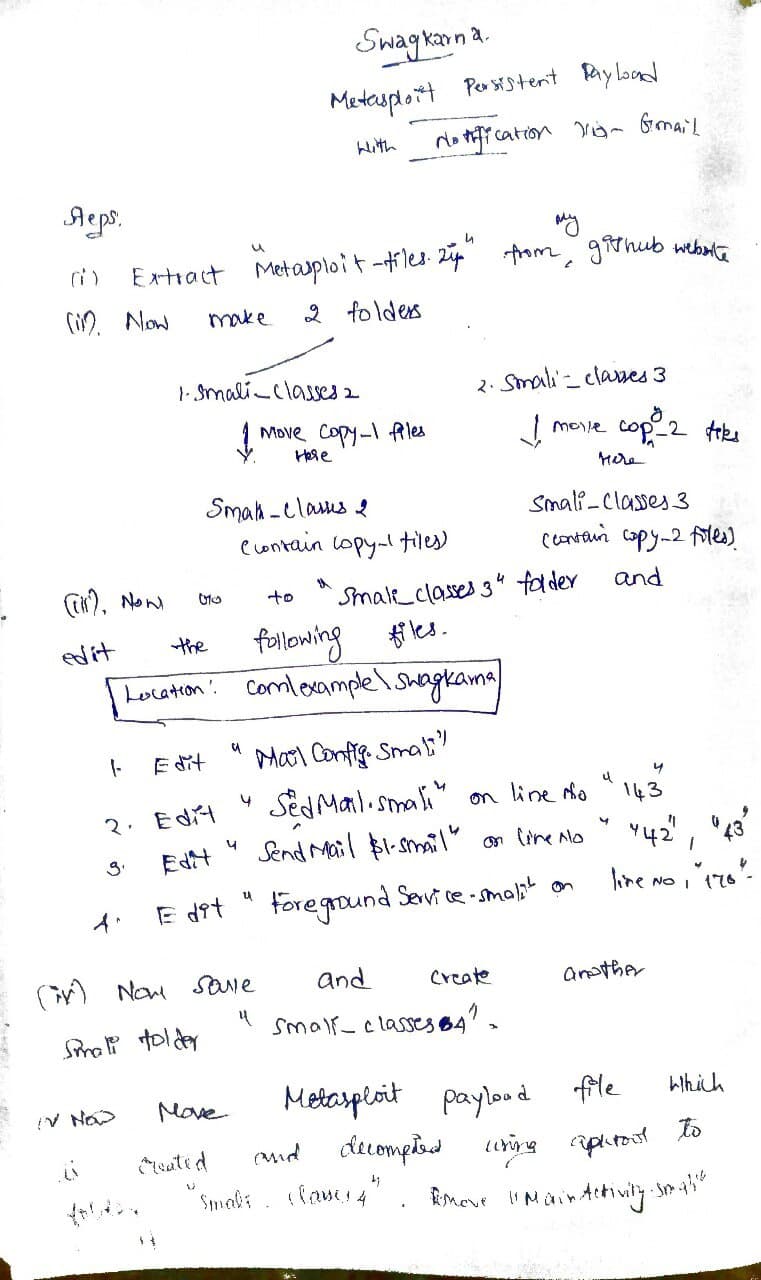 Swagkarna.
Metasploit Persistent Payload
With Notification via Gmail
Steps.
(i) Extract "Metasploit-files.zip" from my github website
(ii). Now make 2 folders
1. Smali_Classes2 2. Smali_classes3
Move Copy-1 files Here move copy_2 files Here
Smali_Classes 2 Smali_Classes3
(contain copy-1 files) (contain copy-2 files).
(iii), Now Go to "Smali_classes3" folder and
edit the following files.
Location: com\example\swagkarna
1. Edit "MailConfig.Smali"
2. Edit "SedMail.smali" on line No "143"
3. Edit "SendMail $1.smail" on line No "42", "43"
4. Edit "ForegroundService.smali" on line No,
(iv) Now save and create another
Smali folder "smali_classes4".
iv Now Move Metasploit payload file which
is created and decompiled using apktool to
folder "Smali_classes4". Remove "MainActivity.smali"